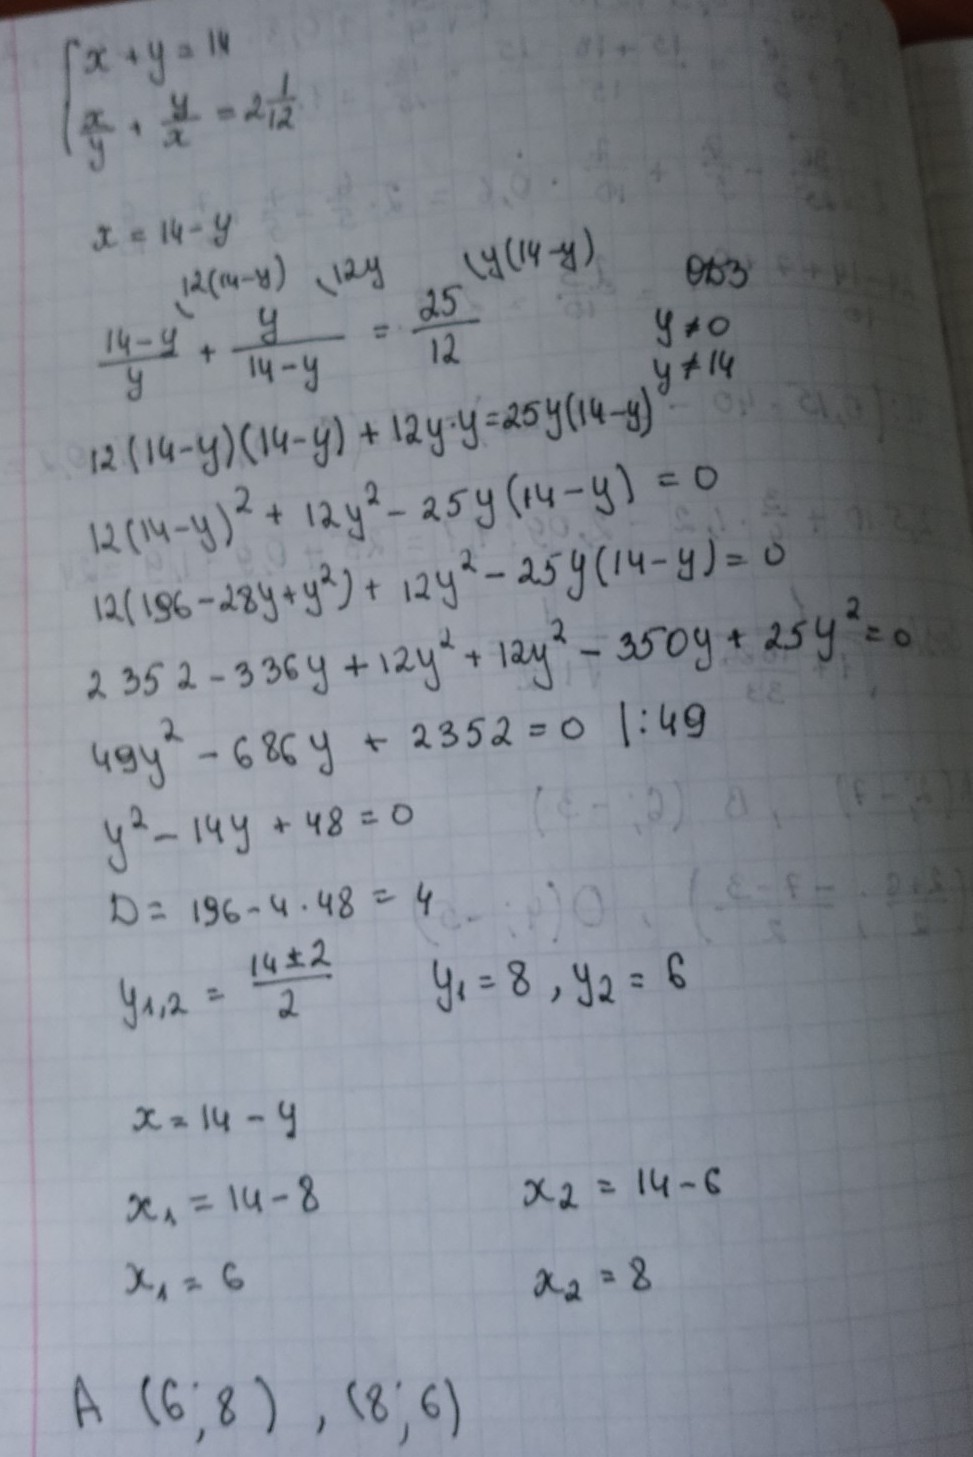 { x + y = 14
x/y + y/x = 2 1/12
x = 14 - y
\12(14-y) \12y \y(14-y) ОДЗ
(14-y)/y + y/(14-y) = 25/12 y ≠ 0
y ≠ 14
12(14-y)(14-y) + 12y·y = 25y(14-y)
12(14-y)² + 12y² - 25y(14-y) = 0
12(196-28y+y²) + 12y² - 25y(14-y) = 0
2352 - 336y + 12y² + 12y² - 350y + 25y² = 0
49y² - 686y + 2352 = 0 |:49
y² - 14y + 48 = 0
D = 196 - 4·48 = 4
y₁,₂ = (14±2)/2 y₁ = 8, y₂ = 6
x = 14 - y
x₁ = 14 - 8 x₂ = 14 - 6
x₁ = 6 x₂ = 8
A (6;8), (8;6)